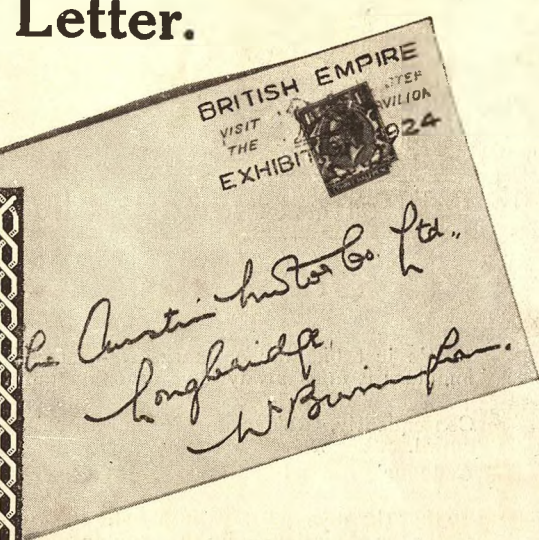 Letter.
BRITISH EMPIRE
VISIT
THE
EXHIBIT 1924
The Austin Motor Co. Ltd.,
Longbridge
Nr Birmingham.